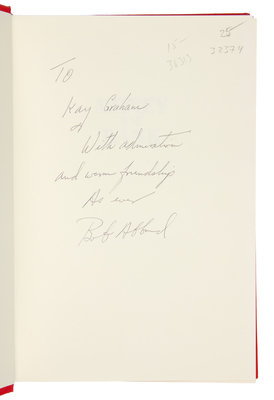 25
15-
32374
To
Kay Graham
With admiration
and warm friendship
As ever
Bob Abboud